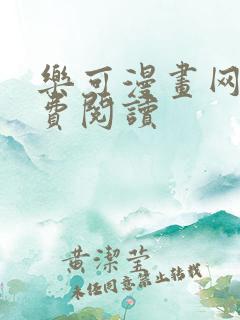 樂可漫畫网
費閱讀
黄潔莹
未经同意禁止转载